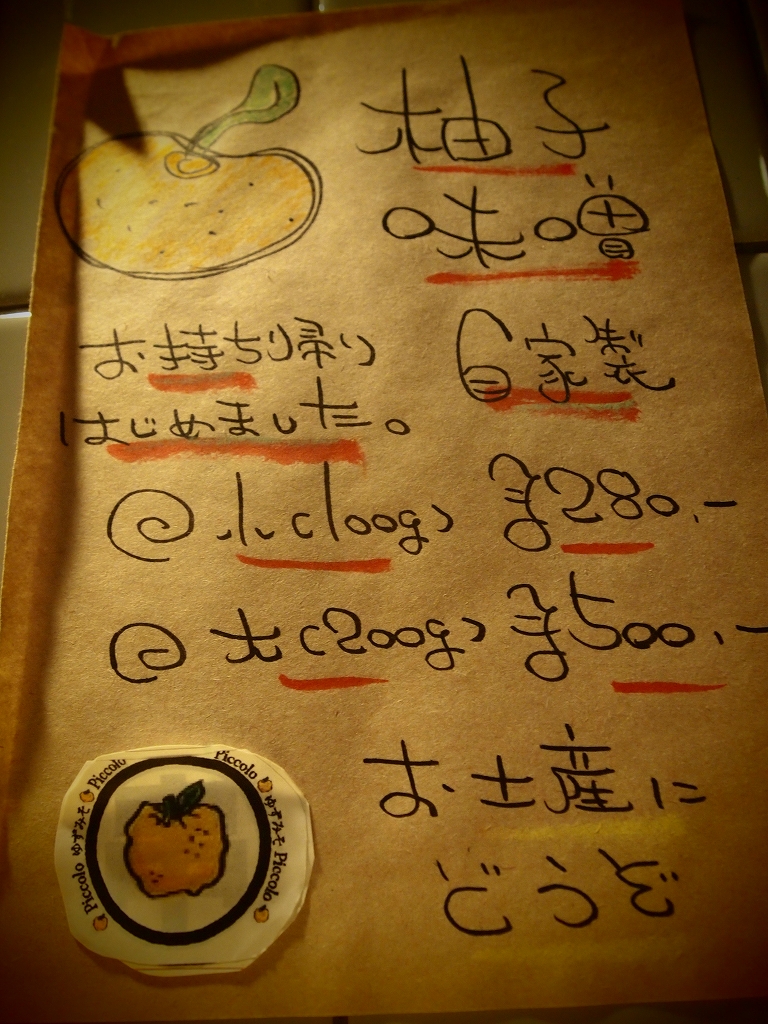 柚子
味噌
自家製
お持ち帰り
はじめました。
小(100g) ¥280.-
大(200g) ¥500.-
お土産に
どうぞ
Piccolo ゆずみそ Piccolo
Piccolo ゆずみそ Piccolo